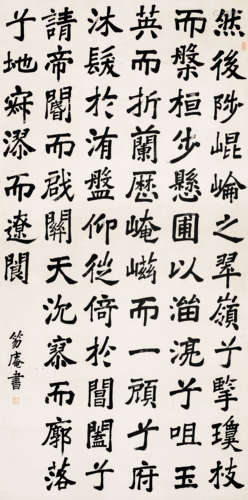 然後陟崐崘之翠嶺兮擥瓊枝
而槃桓步懸圃以淄湸兮咀玉
英而折蘭歷崦嵫而一頋兮府
沐髮於洧盤仰徙倚於閶闔兮
請帝閽而啟關天沉寥而廓落
兮地寂漻而遼閬
笏庵書